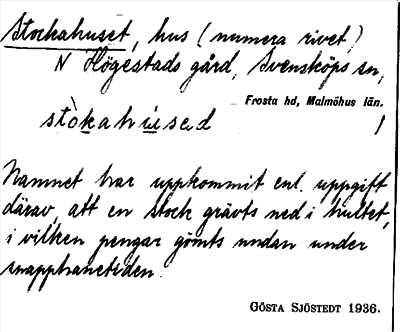 Stockahuset, hus (numera rivet)
N Högestads gård, Svensköps sn,
Frosta hd, Malmöhus län.
stòkahúsəd
Namnet har uppkommit enl. uppgift
därav, att en stock grävts ned i hultet,
i vilken pengar gömts undan under
snapphanetiden.
GÖSTA SJÖSTEDT 1936.